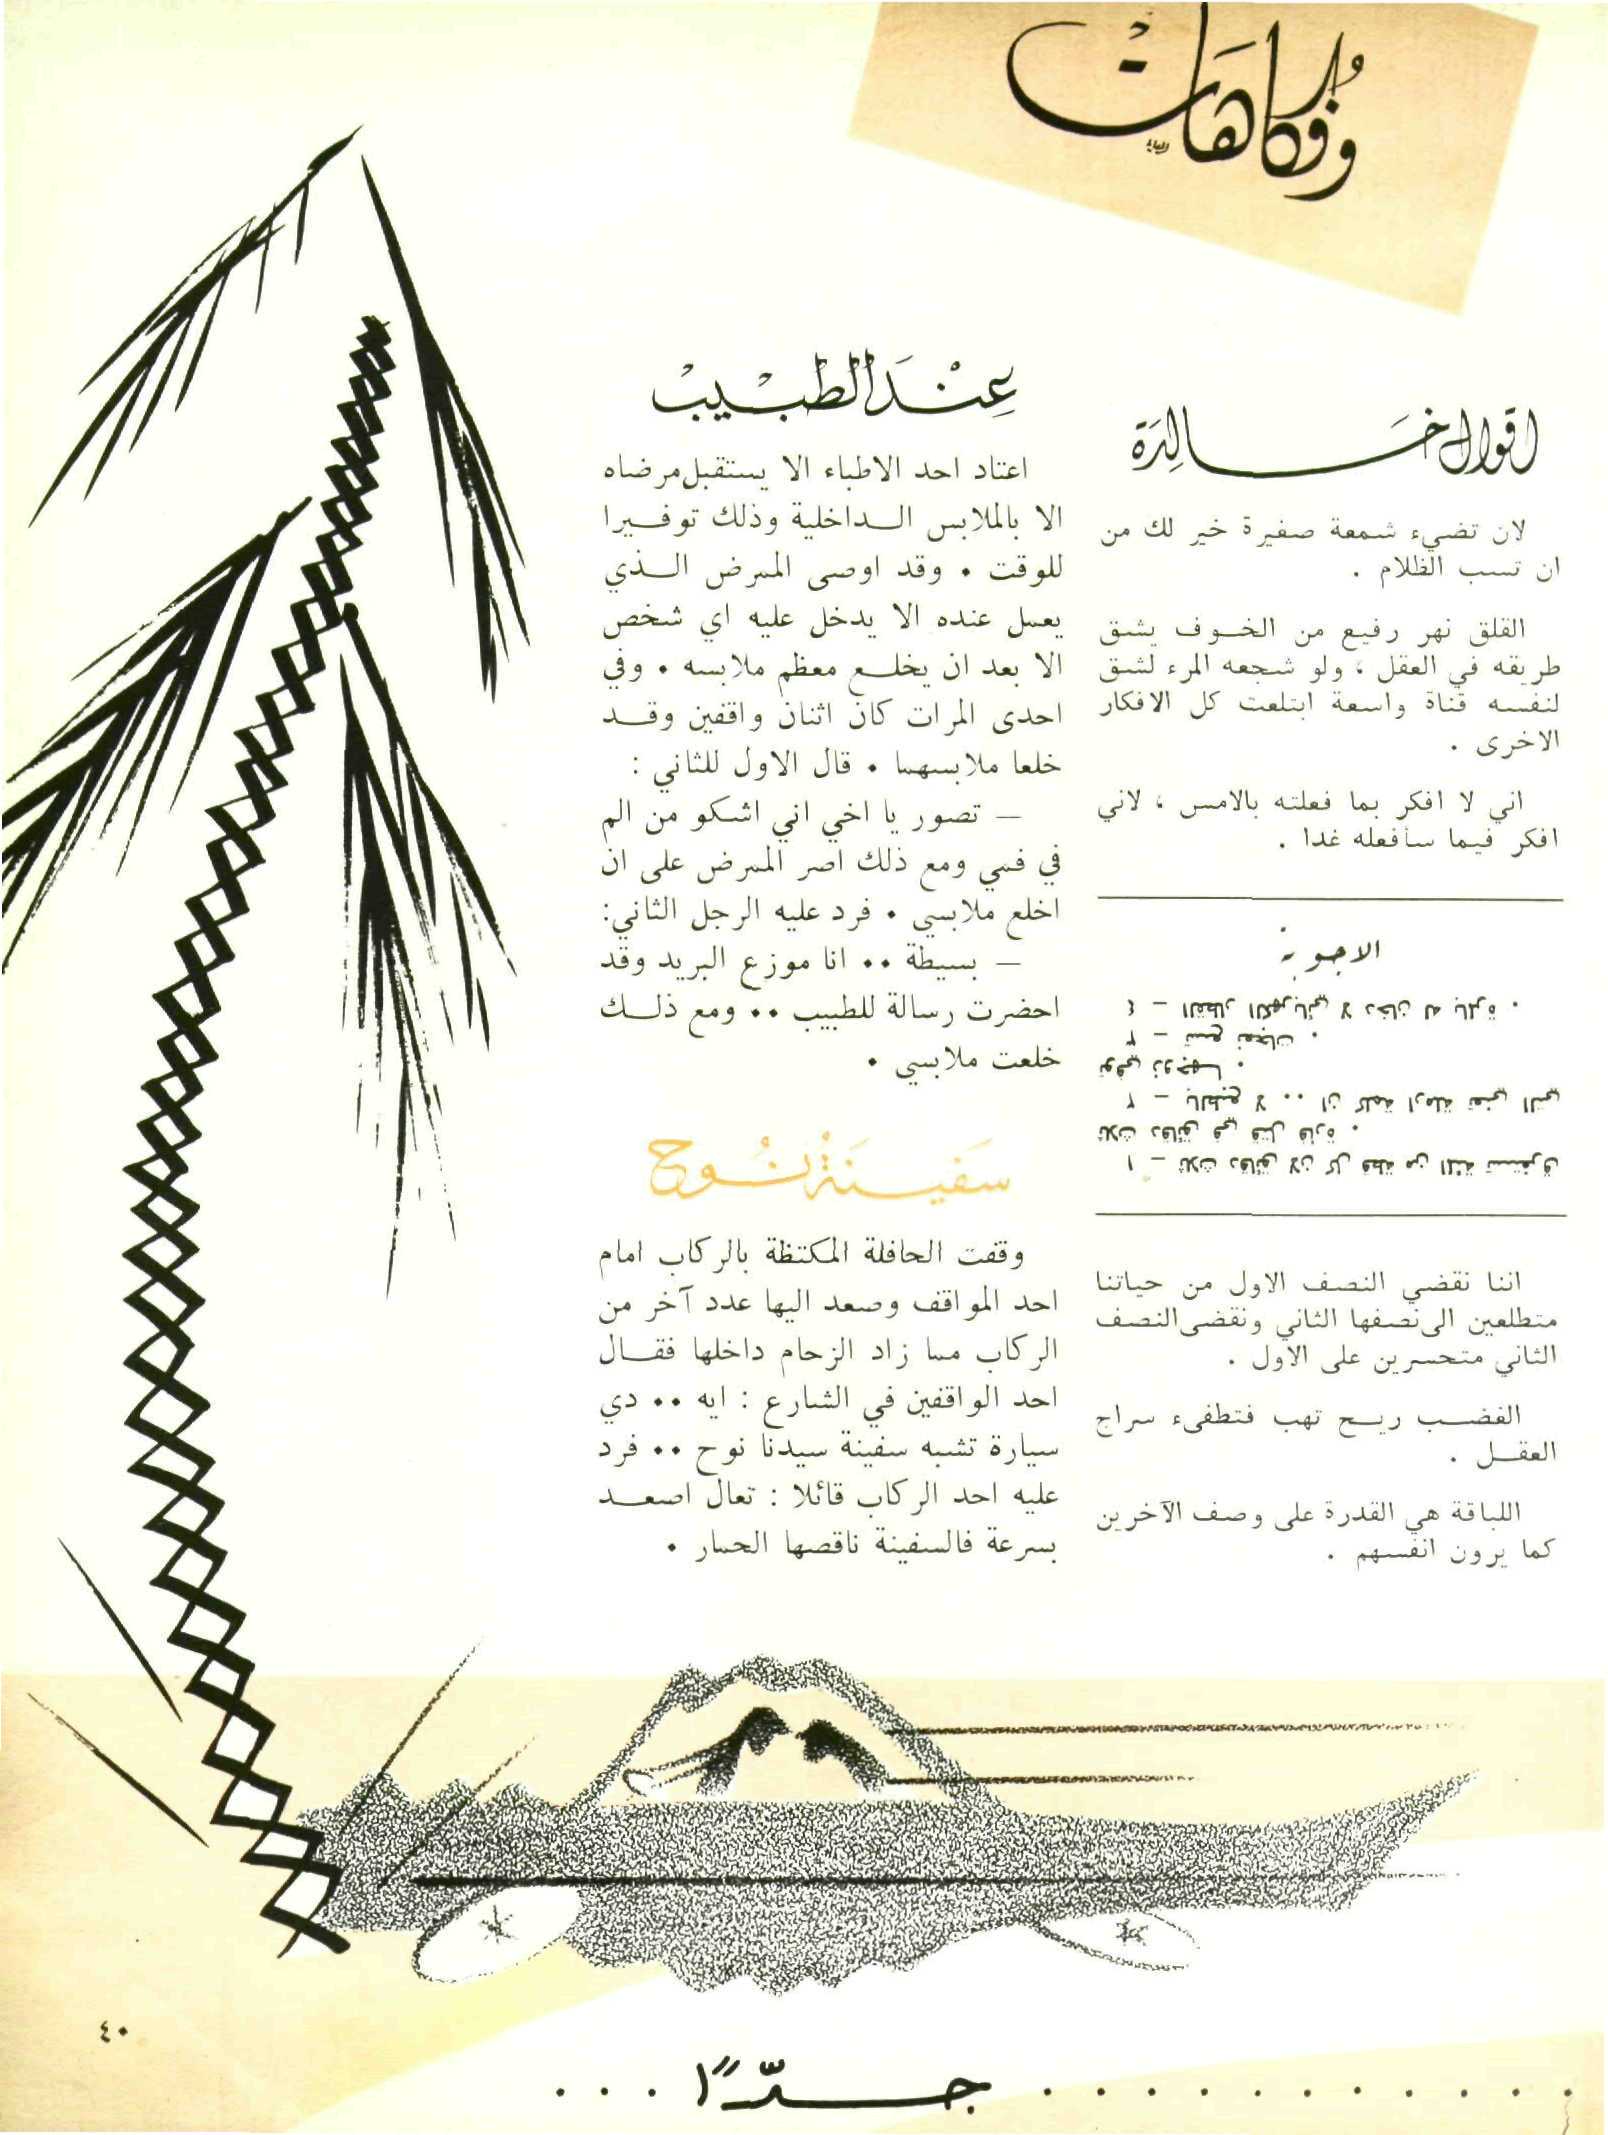 وفكاهات
اقوال خالدة
لان تضيء شمعة صغيرة خير لك من
ان تسب الظلام .
القلق نهر رفيع من الخوف يشق
طريقه في العقل ، ولو شجعه المرء لشق
لنفسه قناة واسعة ابتلعت كل الافكار
الاخرى .
اني لا افكر بما فعلته بالامس ، لاني
افكر فيما سأفعله غدا .
الاجوبة
١ – ثلاث دقائق لان كل قطة من الستة تستغرق
ثلاث دقائق في قتل فأرة .
٢ – بالطبع لا .. ان كلمة ارملة تعني التي
توفي زوجها .
٣ – تسع نعجات .
٤ – القطار الكهربائي لا دخان له بالمرة .
اننا نقضي النصف الاول من حياتنا
متطلعين الى نصفها الثاني ونقضي النصف
الثاني متحسرين على الاول .
الغضب ريح تهب فتطفىء سراج
العقل .
اللباقة هي القدرة على وصف الآخرين
كما يرون انفسهم .
عند الطبيب
اعتاد احد الاطباء الا يستقبل مرضاه
الا بالملابس الداخلية وذلك توفيرا
للوقت . وقد اوصى الممرض الذي
يعمل عنده الا يدخل عليه اي شخص
الا بعد ان يخلع معظم ملابسه . وفي
احدى المرات كان اثنان واقفين وقد
خلعا ملابسهما . قال الاول للثاني :
– تصور يا اخي اني اشكو من الم
في فمي ومع ذلك اصر الممرض على ان
اخلع ملابسي . فرد عليه الرجل الثاني:
– بسيطة .. انا موزع البريد وقد
احضرت رسالة للطبيب .. ومع ذلك
خلعت ملابسي .
سفينة نوح
وقفت الحافلة المكتظة بالركاب امام
احد المواقف وصعد اليها عدد آخر من
الركاب مما زاد الزحام داخلها فقال
احد الواقفين في الشارع : ايه .. دي
سيارة تشبه سفينة سيدنا نوح .. فرد
عليه احد الركاب قائلا : تعال اصعد
بسرعة فالسفينة ناقصها الحمار .
٤٠
........... جدًّا ...